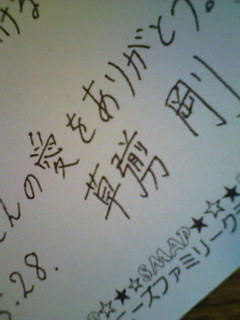 けな
さんの愛をありがとう。
草彅 剛
.28.
☆★☆SMAP★☆★
ニーズファミリークラ